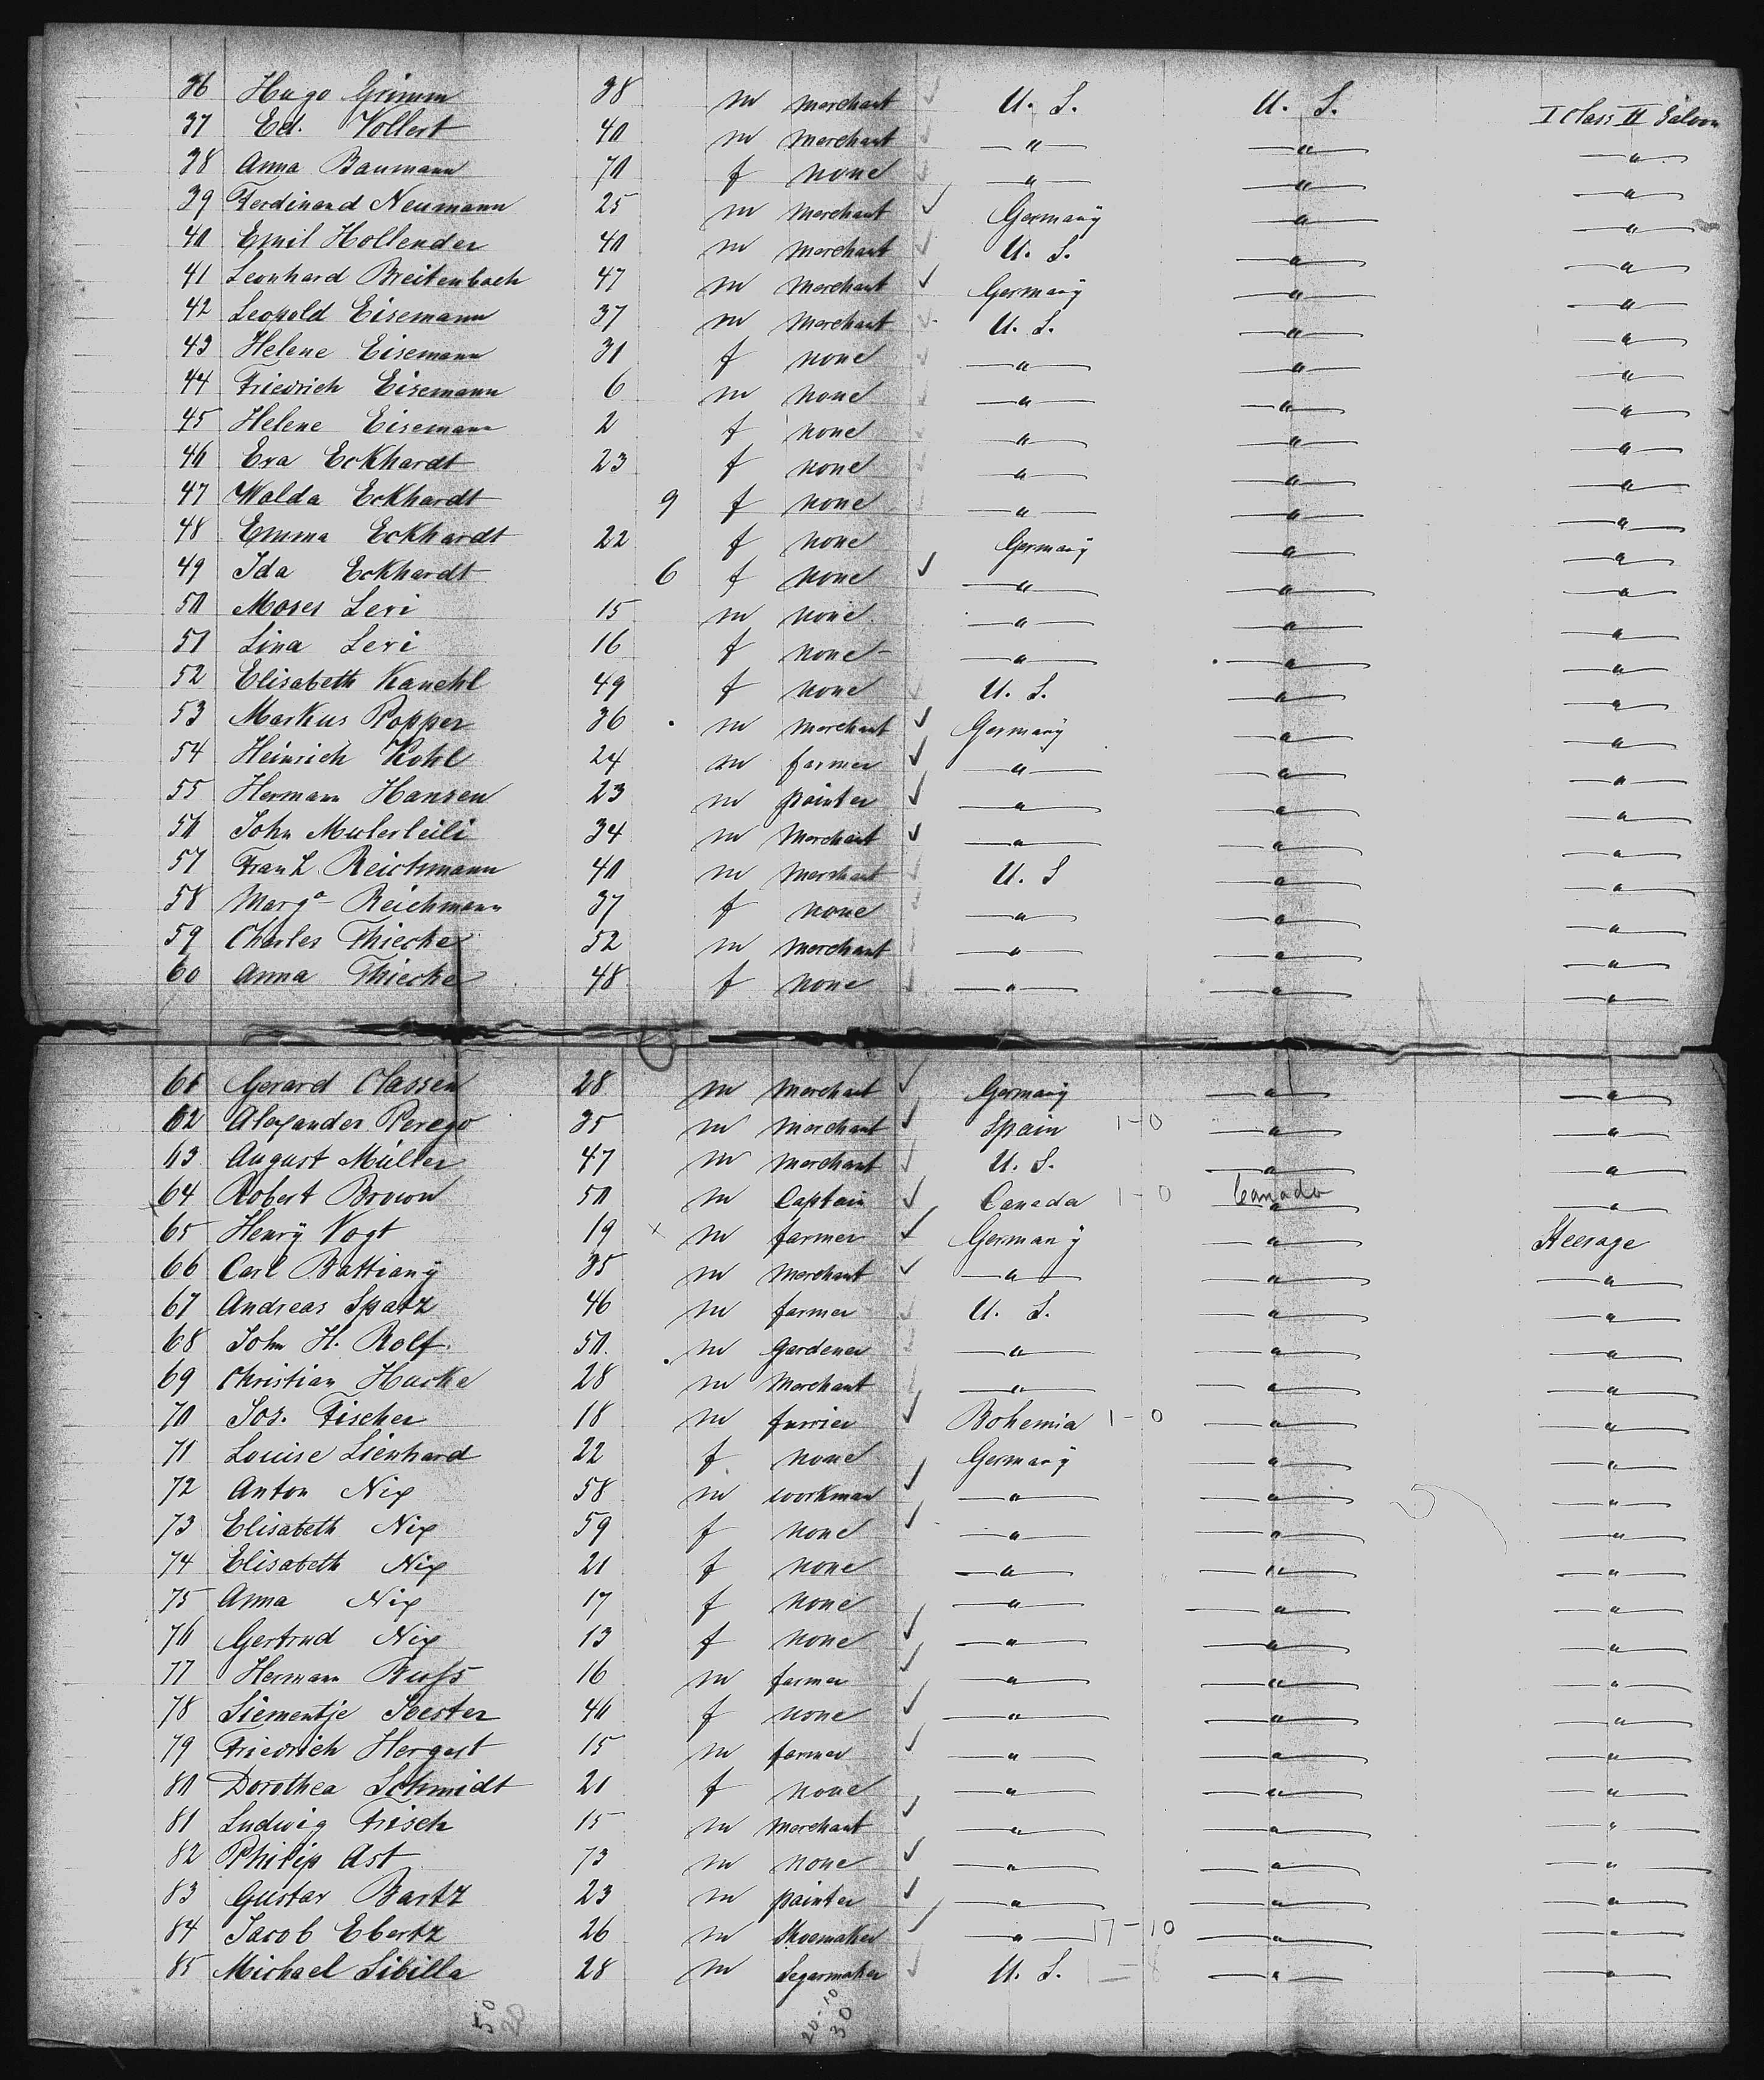 36 Hugo Grimm 38 m merchant ✓ U. S. U. S. I Class II Saloon
37 Ed. Vollert 40 m merchant ✓ — " — — " — — " —
38 Anna Baumann 70 f none ✓ — " — — " — — " —
39 Ferdinand Neumann 25 m merchant ✓ Germany — " — — " —
40 Emil Hollender 40 m merchant ✓ U. S. — " — — " —
41 Leonhard Breitenbach 47 m merchant ✓ Germany — " — — " —
42 Leopold Eisemann 37 m merchant ✓ U. S. — " — — " —
43 Helene Eisemann 31 f none ✓ — " — — " — — " —
44 Friedrich Eisemann 6 m none ✓ — " — — " — — " —
45 Helene Eisemann 2 f none ✓ — " — — " — — " —
46 Eva Eckhardt 23 f none ✓ — " — — " — — " —
47 Walda Eckhardt 9 f none — " — — " — — " —
48 Emma Eckhardt 22 f none Germany — " — — " —
49 Ida Eckhardt 6 f none ✓ — " — — " — — " —
50 Moses Levi 15 m none — " — — " — — " —
51 Lina Levi 16 f none — " — — " — — " —
52 Elisabeth Kanehl 49 f none ✓ U. S. — " — — " —
53 Markus Popper 36 m merchant ✓ Germany — " — — " —
54 Heinrich Kohl 24 m farmer ✓ — " — — " — — " —
55 Hermann Hansen 23 m painter ✓ — " — — " — — " —
56 John 34 m merchant ✓ — " — — " — — " —
57 Franz Reichmann 40 m merchant ✓ U. S — " — — " —
58 Marga Reichmann 37 f none ✓ — " — — " — — " —
59 Charles Thiecke 52 m merchant ✓ — " — — " — — " —
60 Anna Thiecke 48 f none ✓ — " — — " — — " —
61 Gerard Classen 28 m merchant ✓ Germany — " — — " —
62 Alexander Perego 35 m merchant ✓ Spain 1-0 — " — — " —
63 August Müller 47 m merchant ✓ U. S. — " — — " —
64 Robert Brown 50 m Captain ✓ Canada 1-0 Canada — " — — " —
65 Henry Vogt 19 x m farmer ✓ Germany — " — Steerage
66 Carl Battiany 35 m merchant ✓ — " — — " — — " —
67 Andreas Spatz 46 m farmer ✓ U. S. — " — — " —
68 John H. Rolf. 50. m gardener ✓ — " — — " — — " —
69 Christian Hucke 28 m merchant — " — — " — — " —
70 Jos. Fischer 18 m furrier ✓ Bohemia 1-0 — " — — " —
71 Louise Lienhard 22 f none Germany — " — — " —
72 Anton Nix 58 m workman ✓ — " — — " — — " —
73 Elisabeth Nix 59 f none ✓ — " — — " — — " —
74 Elisabeth Nix 21 f none — " — — " — — " —
75 Anna Nix 17 f none — " — — " — — " —
76 Gertrud Nix 13 f none ✓ — " — — " — — " —
77 Hermann Buss 16 m farmer ✓ — " — — " — — " —
78 Siementje Seester 40 f none ✓ — " — — " — — " —
79 Friedrich Hergert 15 m farmer ✓ — " — — " — — " —
80 Dorothea Schmidt 21 f none — " — — " — — " —
81 Ludwig Frisch 15 m merchant ✓ — " — — " — — " —
82 Philip Ast 73 m none ✓ — " — — " — — " —
83 Gustav Bartz 23 m painter ✓ — " — — " — — " —
84 Jacob Ebertz 26 m shoemaker ✓ — " — 17-10 — " — — " —
85 Michael Sibilla 28 m Segarmaker ✓ U. S. — " — — " —
50
20
20-10
30